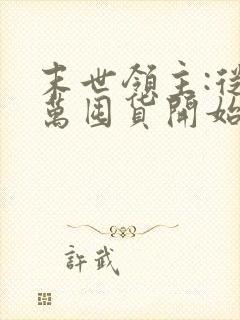 末世領主:從
萬囤貨開始
許武